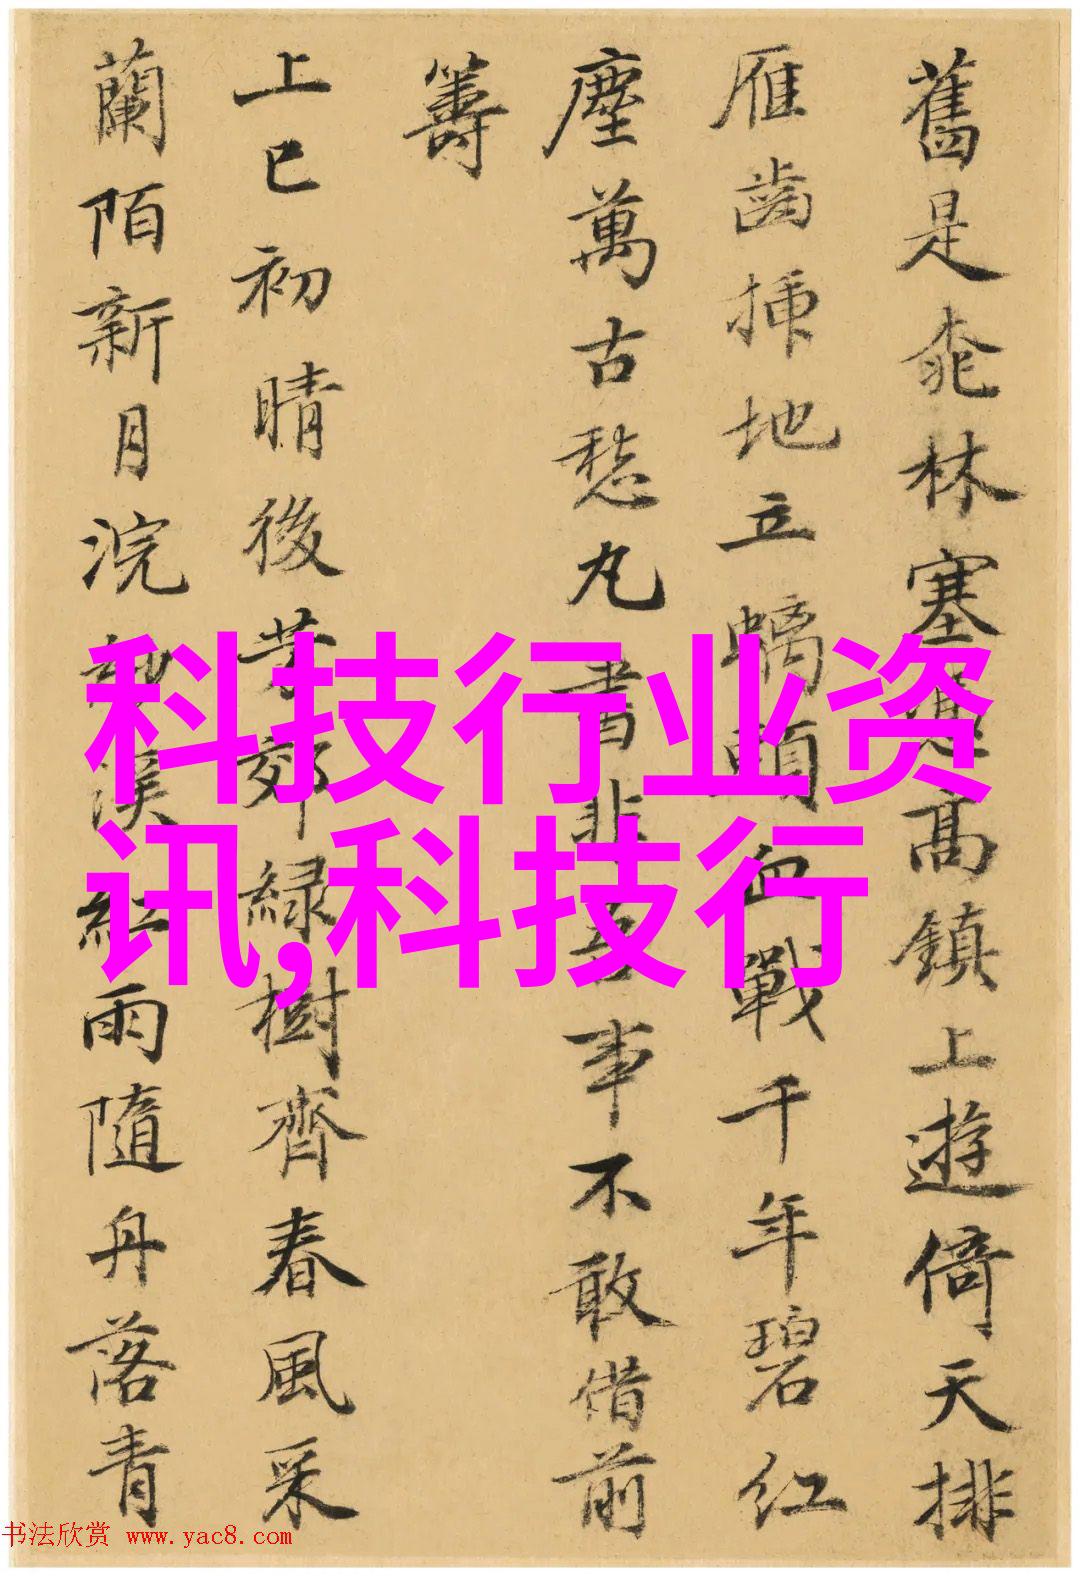 舊是桃林塞高鎮上遊倚天排
雁齒插地立螭頭血戰千年碧紅
塵萬古愁丸書非吾事不敢借前
籌
上巳初晴後芳郊綠樹齊春風采
蘭陌新月浣溪紅雨隨舟落青
科技行业资
讯,科技行
书法欣赏 www.yac8.com